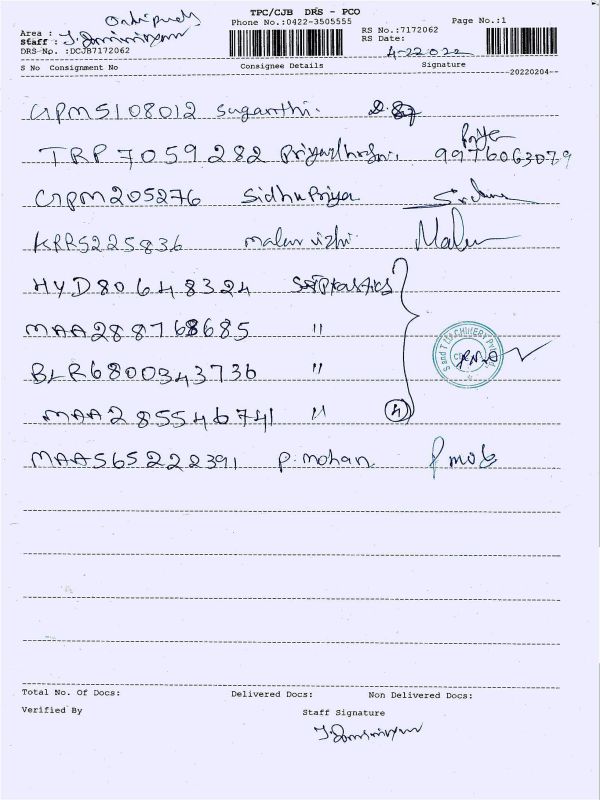 TPC/CJB DRS - PCO
Phone No.:0422-3505555 Page No.:1
Area :
Staff :
RS No.:7172062
RS Date: 4-22022
DRS-No. :DCJB7172062
S No Consignment No Consignee Details Signature
20220204
GPM5108012 Suganthi.
TRP 7059282 9976063079
GPM205276 Sidhu Priya
KRR5225836 malar vizhi. Malar
HYD80648324
MAA288768685 "
BLR6800343736 "
MAA285546741 " 4
MAA565222391 P. mohan
Total No. Of Docs: Delivered Docs: Non Delivered Docs:
Verified By Staff Signature